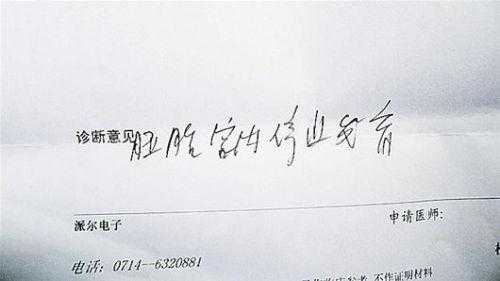 诊断意见 胚胎宫内停止发育
派尔电子
申请医师:
电话: 0714--6320881
不作证明材料